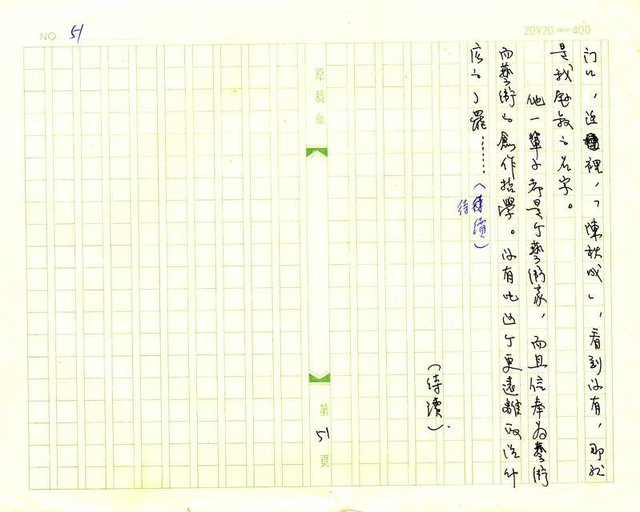 NO 51
20X20＝400
門口，這裡，「陳秋成」，看到沒有，那就
是我勇敢的名字。
他一輩子都是個藝術家，而且信奉為藝術
而藝術的創作哲學。沒有比這個更遠離政治什
麼的了罷……（待續）
待
（待續）.
原稿紙
第51頁